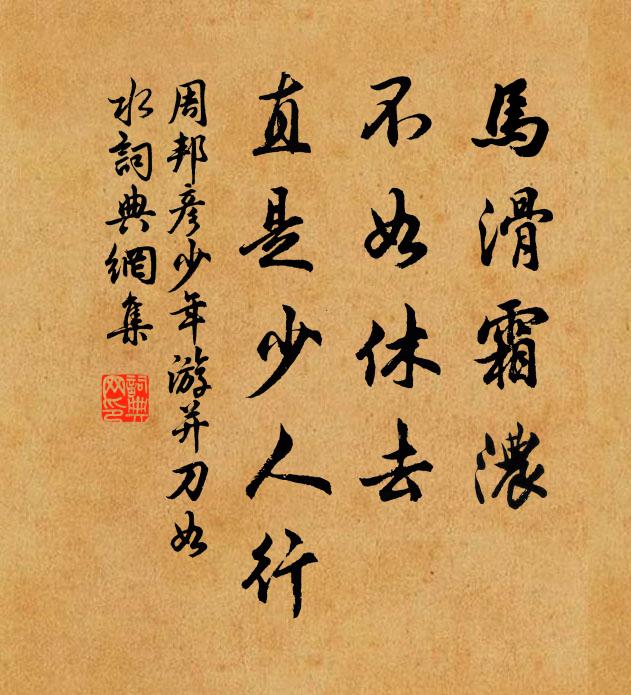 馬滑霜濃
不如休去
直是少人行
周邦彦少年游并刀如
水詞典網集
詞典網印